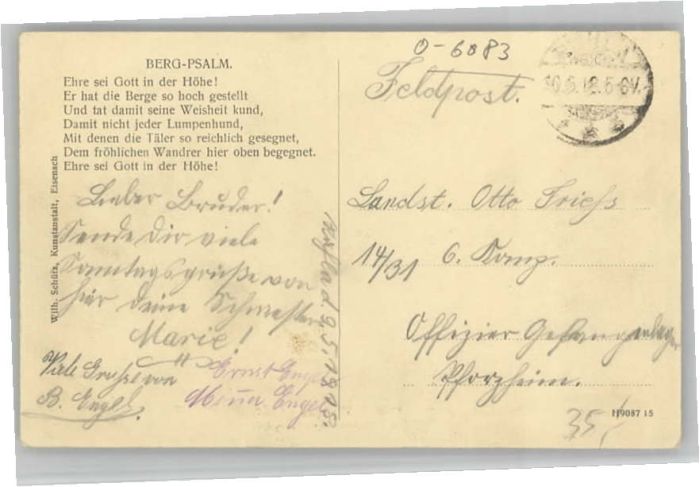 O-6083
Feldpost.
BERG-PSALM.
Ehre sei Gott in der Höhe!
Er hat die Berge so hoch gestellt
Und tat damit seine Weisheit kund,
Damit nicht jeder Lumpenhund,
Mit denen die Täler so reichlich gesegnet,
Dem fröhlichen Wandrer hier oben begegnet.
Ehre sei Gott in der Höhe!
Wilh. Schütz, Kunstanstalt, Eisenach
Lieber Bruder!
Sende Dir viele
Sonntagsgrüße von
hier Deine Schwester
Marie!
Viele Grüsse von
B. Engel.
Ernst Engel
Engel
9.5.1918.
Landst. Otto
14/31 6. Komp.
Offizier Gefangenlager
Pforzheim.
H9087 15
35,-